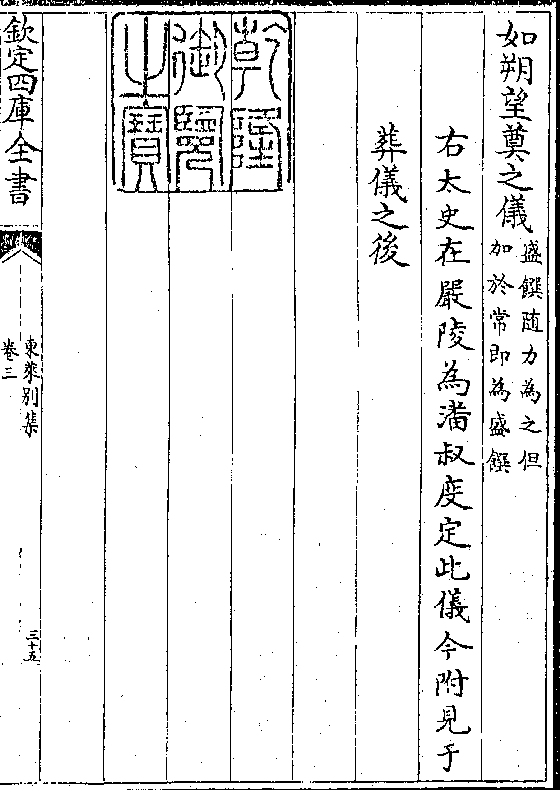 如朔望奠之儀盛饌随力為之但
加於常即為盛饌
右太史在嚴陵為潘叔度定此儀今附見于
葬儀之後
乾隆
御覽
之寶
欽定四庫全書
東萊別集
卷三
三十五